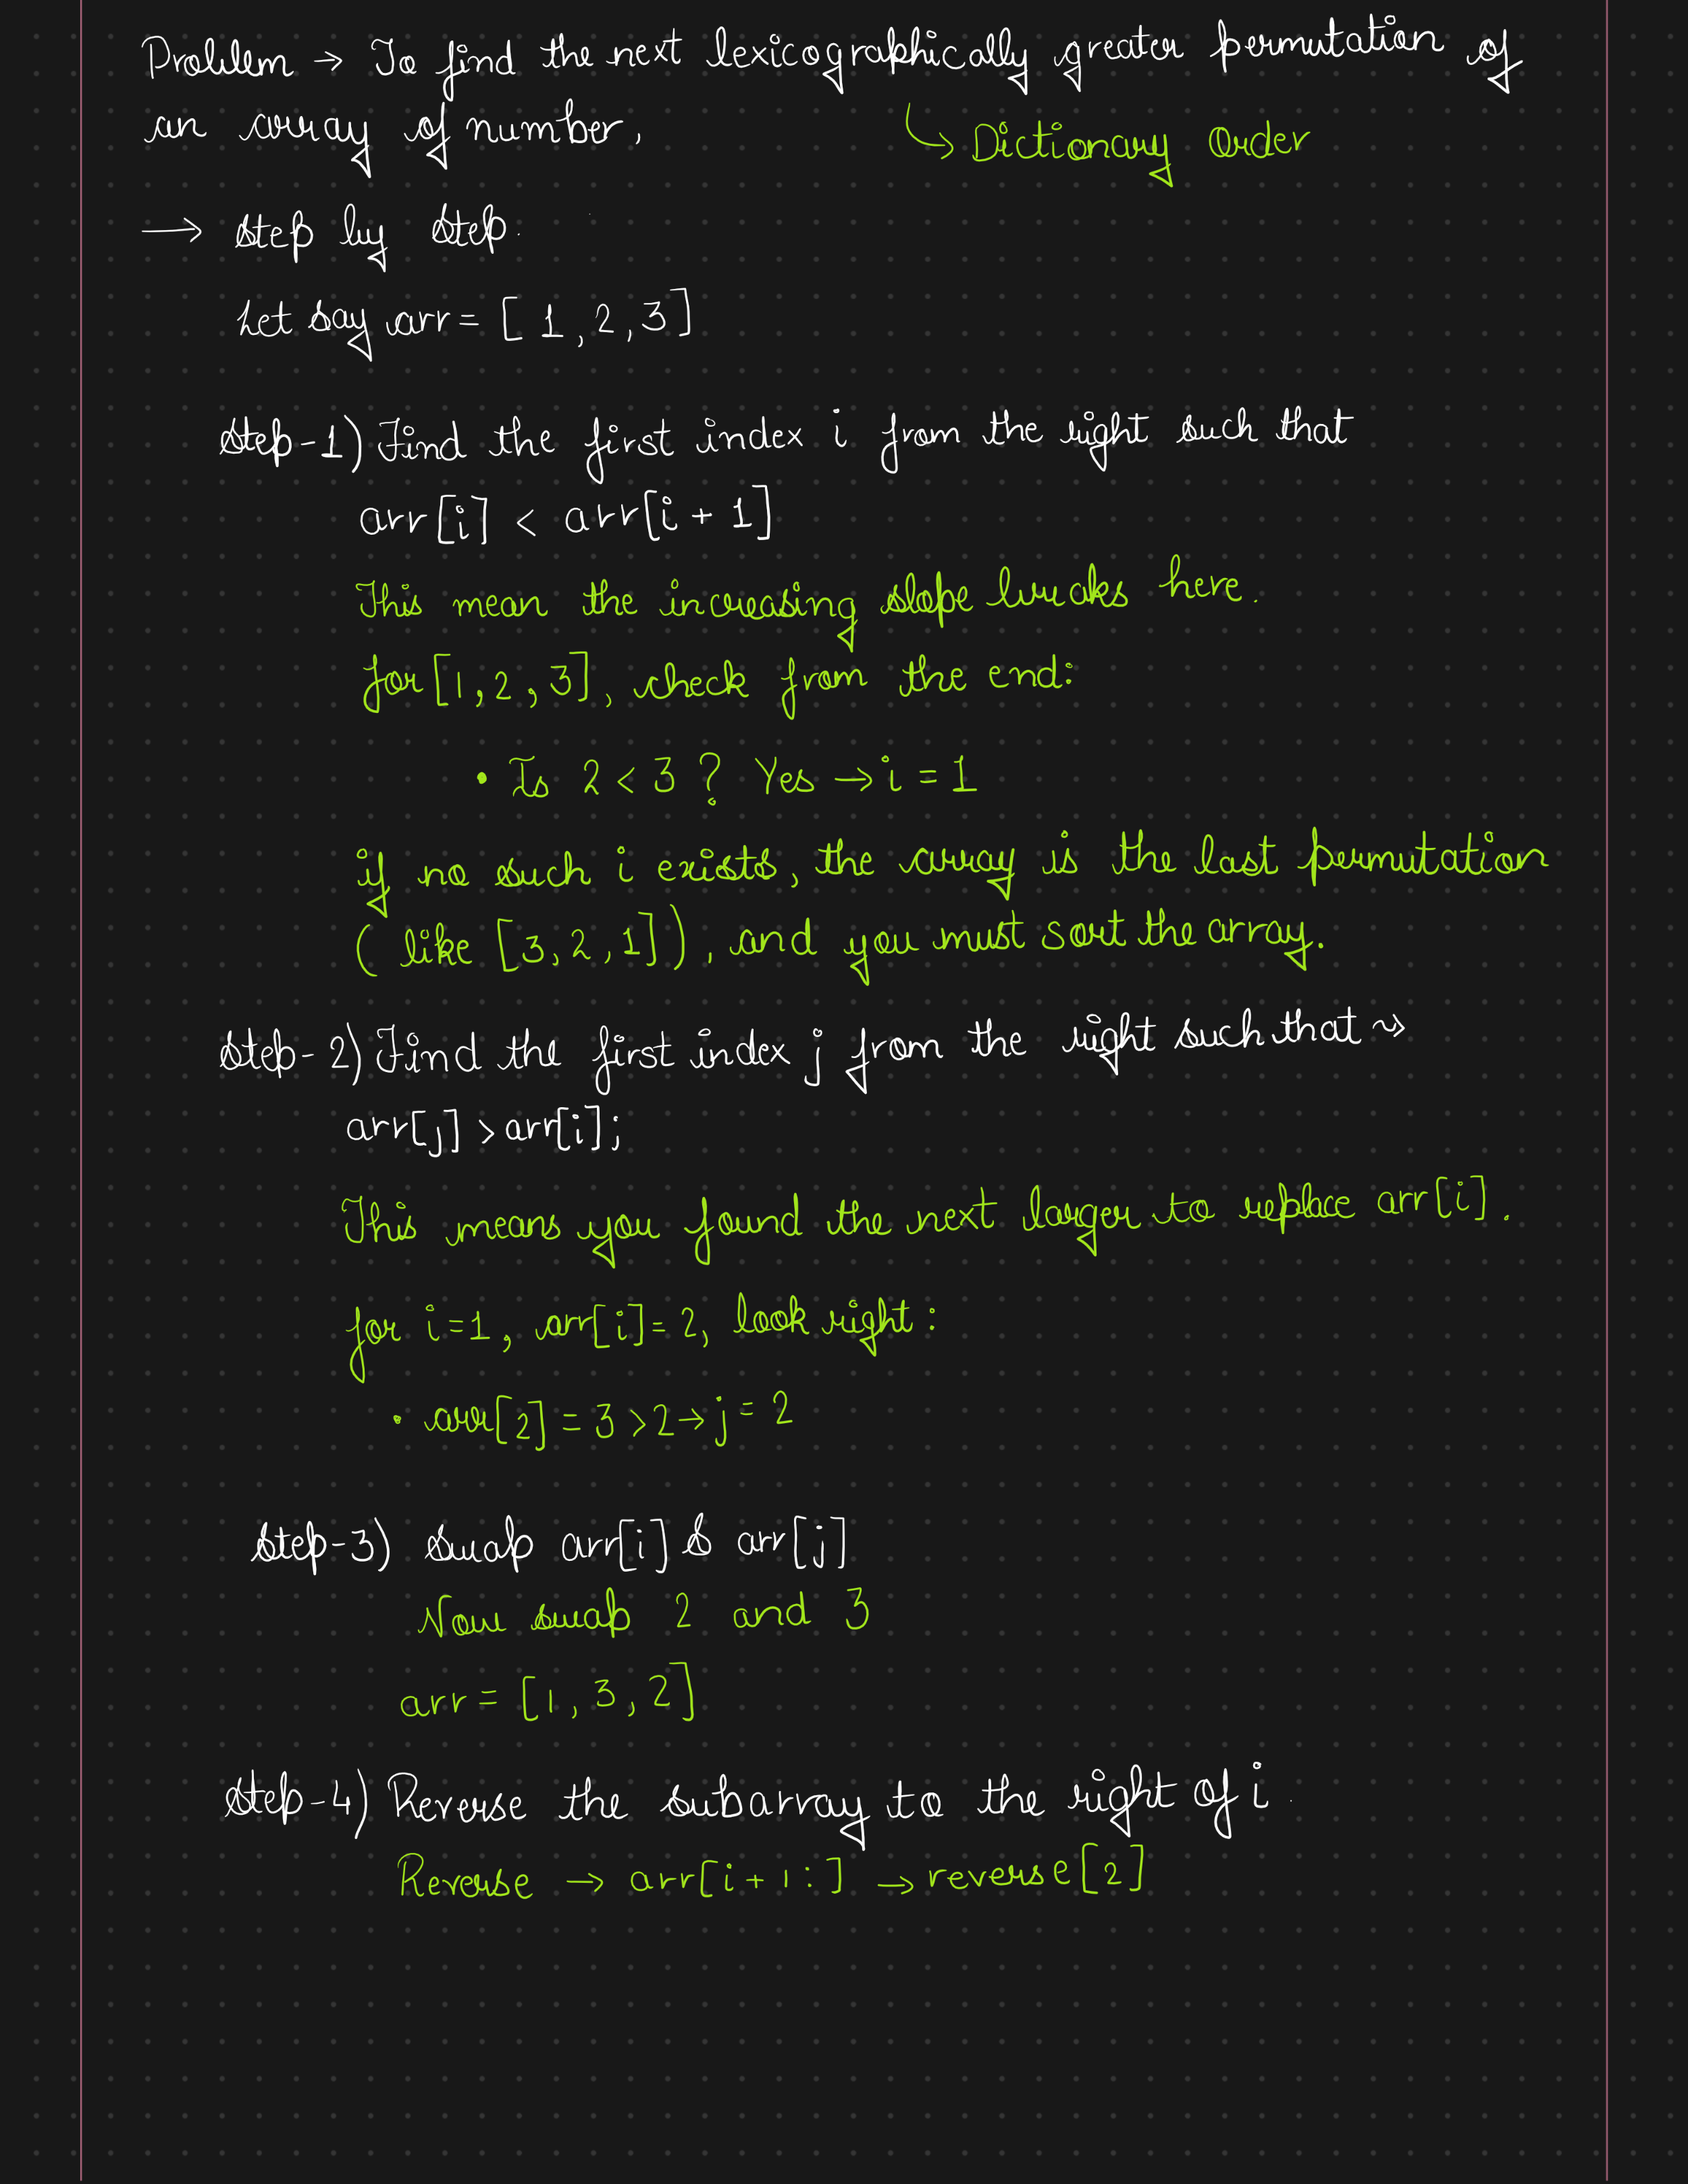 Problem → To find the next lexicographically greater permutation of
an array of number,
↳ Dictionary Order
→ Step by Step.
Let say arr = [ 1, 2, 3]
Step-1) Find the first index i from the right such that
arr[i] < arr[i + 1]
This mean the increasing slope breaks here.
for [1, 2, 3], check from the end:
• Is 2 < 3 ? Yes → i = 1
if no such i exists, the array is the last permutation
( like [3, 2, 1]), and you must sort the array.
Step-2) Find the first index j from the right such that ⇝
arr[j] > arr[i];
This means you found the next larger to replace arr[i].
for i=1, arr[i]= 2, look right:
• arr[2] = 3 > 2 → j = 2
Step-3) Swap arr[i] & arr[j]
Now swap 2 and 3
arr = [1, 3, 2]
Step-4) Reverse the subarray to the right of i.
Reverse → arr[i+1:] → reverse[2]